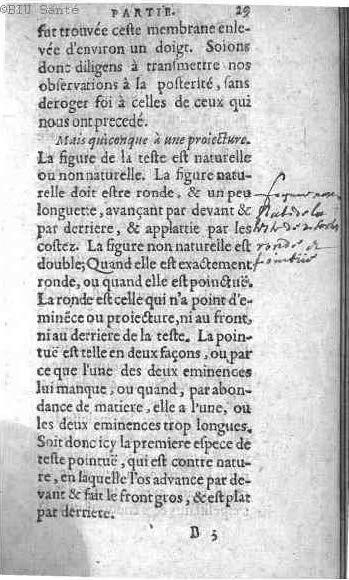 ©BIU Santé
PARTIE. 29
fut trouvée ceste membrane enle-
vée d'environ un doigt. Soions
donc diligens à transmettre nos
observations à la posterité, sans
deroger foi à celles de ceux qui
nous ont precedé.
Mais quiconque à une proiecture.
La figure de la teste est naturelle
ou non naturelle. La figure natu-
relle doit estre ronde, & un peu
longuette, avançant par devant &
par derriere, & applattie par les
costez. La figure non naturelle est
double; Quand elle est exactement
ronde, ou quand elle est poinctuë.
La ronde est celle qui n'a point d'e-
minẽce ou proiecture, ni au front,
ni au derriere de la teste. La poin-
tuë est telle en deux façons, ou par
ce que l'une des deux eminences
lui manque, ou quand, par abon-
dance de matiere, elle a l'une, ou
les deux eminences trop longues.
Soit donc icy la premiere espece de
teste pointuë, qui est contre natu-
re, en laquelle l'os advance par de-
vant & fait le front gros, & est plat
par derriere.
D 3